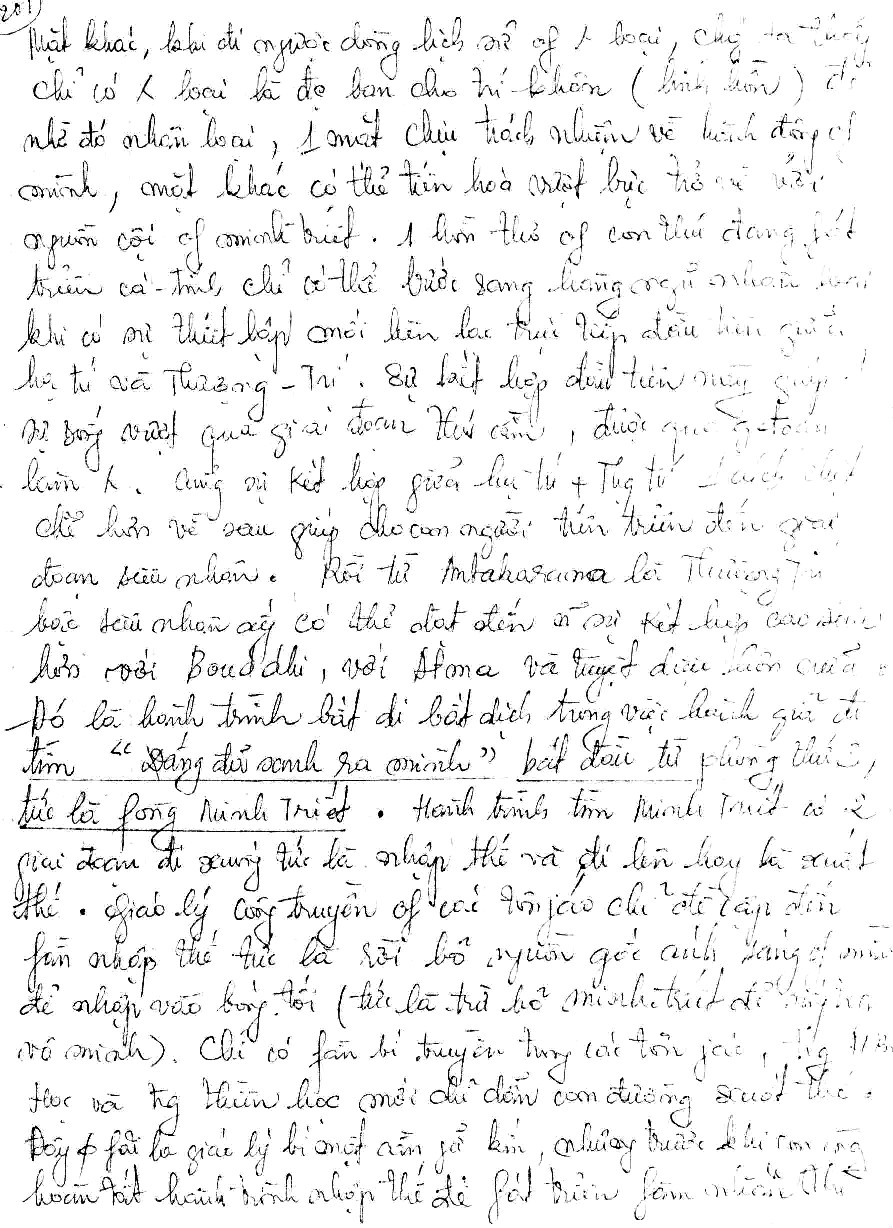 201)
Mặt khác, khi đi ngược dòng lịch sử of λ loại, chg ta thấy
chỉ có λ loại là đc ban cho trí khôn (linh hồn) để
nhờ đó nhân loại, 1 mặt chịu trách nhiệm về hành động of
mình, mặt khác có thể tiến hoá vượt bực trở về với
nguồn cội of minh triết. 1 hồn thú of con thú đang fát
triển cá-tính chỉ có thể bước sang hàng ngũ nhân loại
khi có sự thiết lập mối liên lạc trực tiếp đầu tiên giữa
hạ trí và Thượng-Trí. Sự kết hợp đầu tiên này giúp
sự sống vượt qua giai đoạn thú cầm, được qua gđoạn
làm λ. Cũng sự kết hợp giữa hạ trí + Tg trí 1 cách chặt
chẽ hơn về sau giúp cho con người tiến triển đến giai
đoạn siêu nhân. Rồi từ Antaharama là Thượng Trí
bậc siêu nhân ấy có thể đạt đến sự kết hợp cao siêu
hơn với Bouddhi, với Atma và tuyệt diệu hơn nữa
Đó là hành trình bất di bất dịch trong việc hành giả đi
tìm "Đấng đã sanh ra mình" bắt đầu từ phòng thứ 3,
tức là fòng Minh Triết. Hành trình tìm Minh Triết có 2
giai đoạn đi xuống tức là nhập thế và đi lên hay là xuất
thế. Giáo lý công truyền of các tôn jáo chỉ đề cập đến
fần nhập thế tức là rời bỏ nguồn gốc ánh sáng of mình
để nhập vào bóng tối (tức là từ bỏ minh triết để
vô minh). Chỉ có fần bí truyền trong các tôn jáo, tg
Học và tg thiền học mới chỉ dẫn con đường xuất thế.
Đây φ fải là giáo lý bí mật cần jữ kín, nhưng trước khi con ng
hoàn tất hành trình nhập thế để fát triển fàm nhân thì